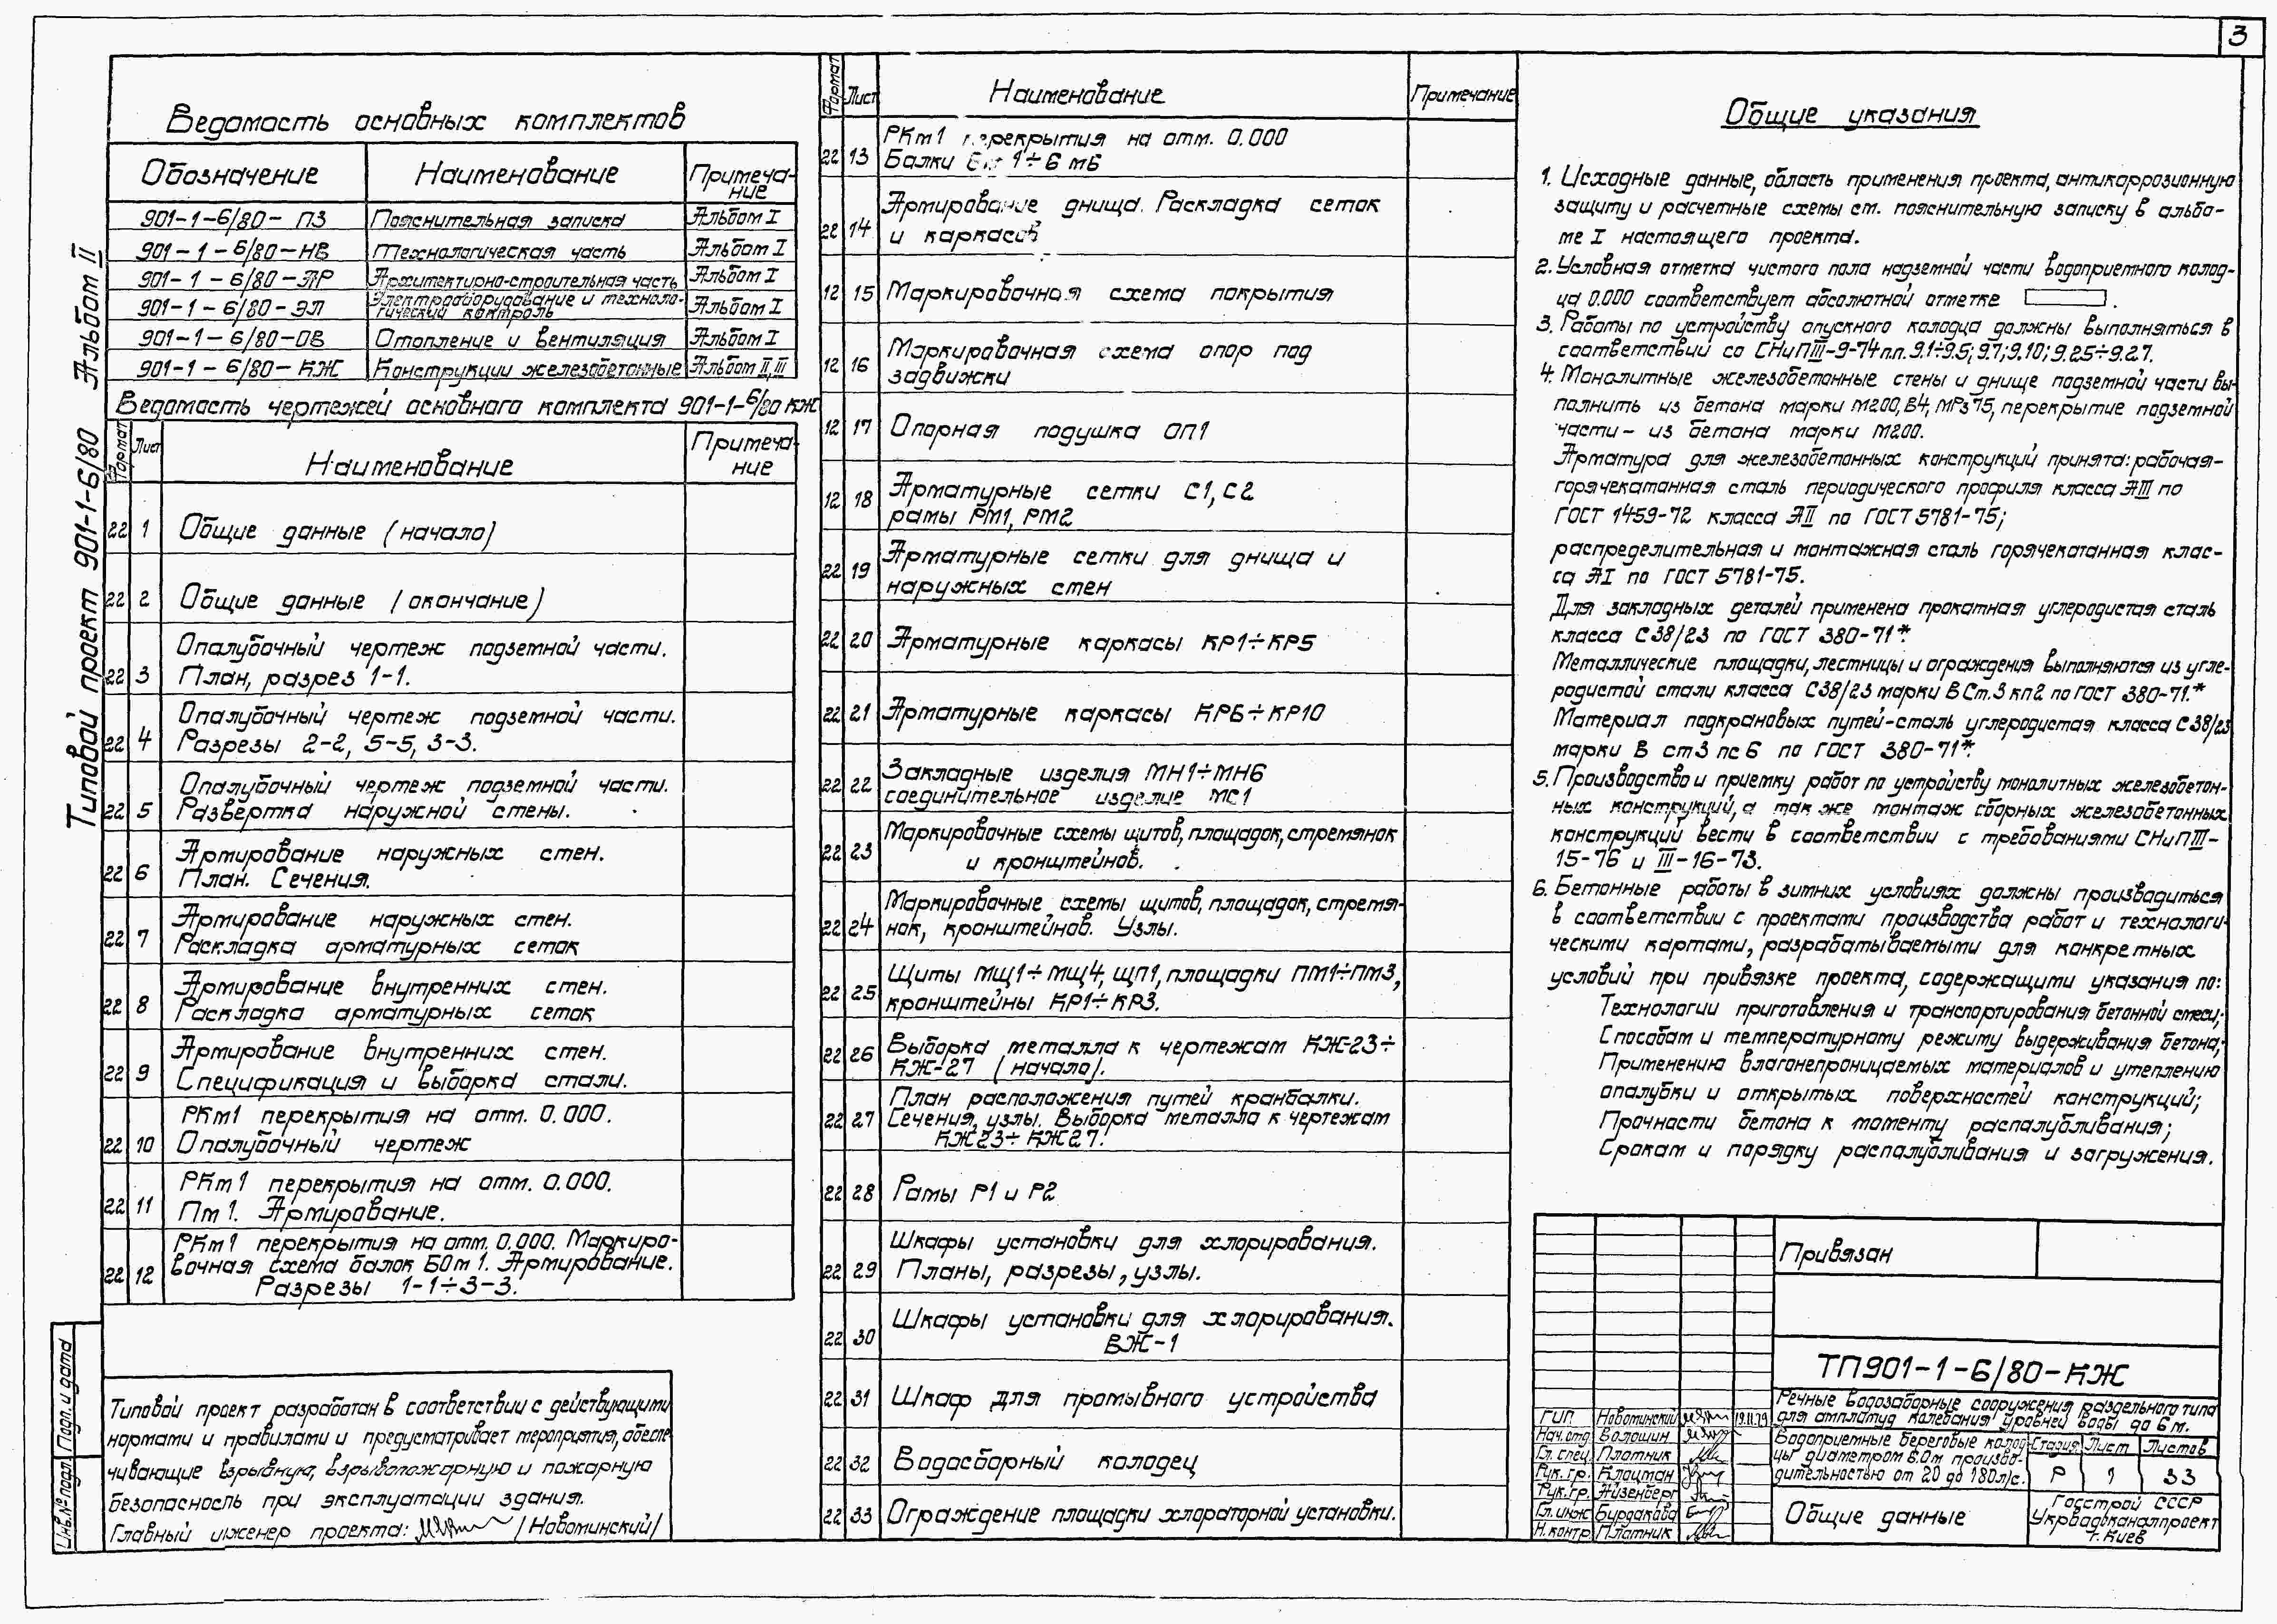 3
Типовой проект 901-1-6/80 Альбом II
Ведомость основных комплектов
Обозначение Наименование Примеча-
ние
901-1-6/80-ПЗ Пояснительная записка Альбом I
901-1-6/80-НВ Технологическая часть Альбом I
901-1-6/80-АР Архитектурно-строительная часть Альбом I
901-1-6/80-ЭЛ Электрооборудование и техноло-
гический контроль Альбом I
901-1-6/80-ОВ Отопление и вентиляция Альбом I
901-1-6/80-КЖ Конструкции железобетонные Альбом II, III
Ведомость чертежей основного комплекта 901-1-6/80 КЖ
Формат Лист Наименование Примеча-
ние
22 1 Общие данные (начало)
22 2 Общие данные (окончание)
Опалубочный чертеж подземной части.
22 3 План, разрез 1-1.
Опалубочный чертеж подземной части.
22 4 Разрезы 2-2, 5-5, 3-3.
Опалубочный чертеж подземной части.
22 5 Развертка наружной стены.
Армирование наружных стен.
22 6 План. Сечения.
Армирование наружных стен.
22 7 Раскладка арматурных сеток
Армирование внутренних стен.
22 8 Раскладка арматурных сеток
Армирование внутренних стен.
22 9 Спецификация и выборка стали.
РКм1 перекрытия на отм. 0.000.
22 10 Опалубочный чертеж
РКм1 перекрытия на отм. 0.000.
22 11 Пм1. Армирование.
РКм1 перекрытия на отм. 0.000. Маркиро-
вочная схема балок БОм1. Армирование.
22 12 Разрезы 1-1÷3-3.
Типовой проект разработан в соответствии с действующими
нормами и правилами и предусматривает мероприятия, обеспе-
чивающие взрывную, взрывопожарную и пожарную
безопасность при эксплуатации здания.
Главный инженер проекта: /Новоминский/
Подп. и дата
Инв.№ подл.
Формат Лист Наименование Примечание
РКм1 перекрытия на отм. 0.000
22 13 Балки 1÷6 мб
Армирование днища. Раскладка сеток
22 14 и каркасов
12 15 Маркировочная схема покрытия
Маркировочная схема опор под
12 16 задвижки
12 17 Опорная подушка ОП1
Арматурные сетки С1, С2
12 18 рамы РМ1, РМ2
Арматурные сетки для днища и
22 19 наружных стен
22 20 Арматурные каркасы КР1÷КР5
22 21 Арматурные каркасы КР6÷КР10
Закладные изделия МН1÷МН6
22 22 соединительное изделие МС1
Маркировочные схемы щитов, площадок, стремянок
22 23 и кронштейнов.
Маркировочные схемы щитов, площадок, стремя-
22 24 нок, кронштейнов. Узлы.
Щиты МЩ1÷МЩ4, ЩП1, площадки ПМ1÷ПМ3,
22 25 кронштейны КР1÷КР3.
Выборка металла к чертежам КЖ-23÷
22 26 КЖ-27 (начало).
План расположения путей кранбалки.
22 27 Сечения, узлы. Выборка металла к чертежам
КЖ23÷КЖ27.
22 28 Рамы Р1 и Р2
Шкафы установки для хлорирования.
22 29 Планы, разрезы, узлы.
Шкафы установки для хлорирования.
22 30 ВЖ-1
22 31 Шкаф для промывного устройства
22 32 Водосборный колодец
22 33 Ограждение площадки хлораторной установки.
Общие указания
1. Исходные данные, область применения проекта, антикоррозионную
защиту и расчетные схемы см. пояснительную записку в альбо-
ме I настоящего проекта.
2. Условная отметка чистого пола надземной части водоприемного колод-
ца 0.000 соответствует абсолютной отметке .
3. Работы по устройству опускного колодца должны выполняться в
соответствий со СНиПIII-9-74 п.п. 9.1÷9.5; 9.7; 9.10; 9.25÷9.27.
4. Монолитные железобетонные стены и днище подземной части вы-
полнить из бетона марки М200, В4, МРз75, перекрытие подземной
части - из бетона марки М200.
Арматура для железобетонных конструкций принята: рабочая-
горячекатанная сталь периодического профиля класса АIII по
ГОСТ 1459-72 класса АII по ГОСТ 5781-75;
распределительная и монтажная сталь горячекатанная клас-
са АI по ГОСТ 5781-75.
Для закладных деталей применена прокатная углеродистая сталь
класса С38/23 по ГОСТ 380-71*.
Металлические площадки, лестницы и ограждения выполняются из угле-
родистой стали класса С38/23 марки ВСт.3 кп2 по ГОСТ 380-71.*
Материал подкрановых путей-сталь углеродистая класса С38/23
марки В ст3 пс6 по ГОСТ 380-71*.
5. Производство и приемку работ по устройству монолитных железобетон-
ных конструкций, а так же монтаж сборных железобетонных
конструкций вести в соответствии с требованиями СНиПIII-
15-76 и III-16-73.
6. Бетонные работы в зимних условиях должны производиться
в соответствии с проектами производства работ и технологи-
ческими картами, разрабатываемыми для конкретных
условий при привязке проекта, содержащими указания по:
Технологии приготовления и транспортирования бетонной смеси;
Способам и температурному режиму выдерживания бетона;
Применению влагонепроницаемых материалов и утеплению
опалубки и открытых поверхностей конструкций;
Прочности бетона к моменту распалубливания;
Срокам и порядку распалубливания и загружения.
Привязан
ТП901-1-6/80-КЖ
Речные водозаборные сооружения раздельного типа
для амплитуд колебания уровней воды до 6 м.
Водоприемные береговые колод-
цы диаметром 6.0м произво-
дительностью от 20 до 180л/с.
Стадия Лист Листов
Р 1 33
Общие данные
Госстрой СССР
Укрводоканалпроект
г. Киев
ГИП Новоминский 19.11.79
Нач. отд Волошин
Гл. спец Плотник
Рук. гр. Клоцман
Рук. гр. Айзенберг
Гл. инж Бурдакова
Н. контр Плотник